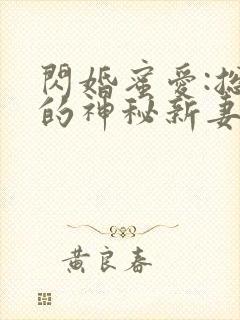 閃婚蜜愛:總
的神秘新妻
黃良春